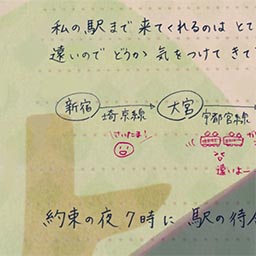 私の駅まで来てくれるのは とて
遠いので どうか 気をつけて きて
新宿 埼京線 大宮 宇都宮線
さいたま!
遠いよー
約束の夜 7時に 駅の待